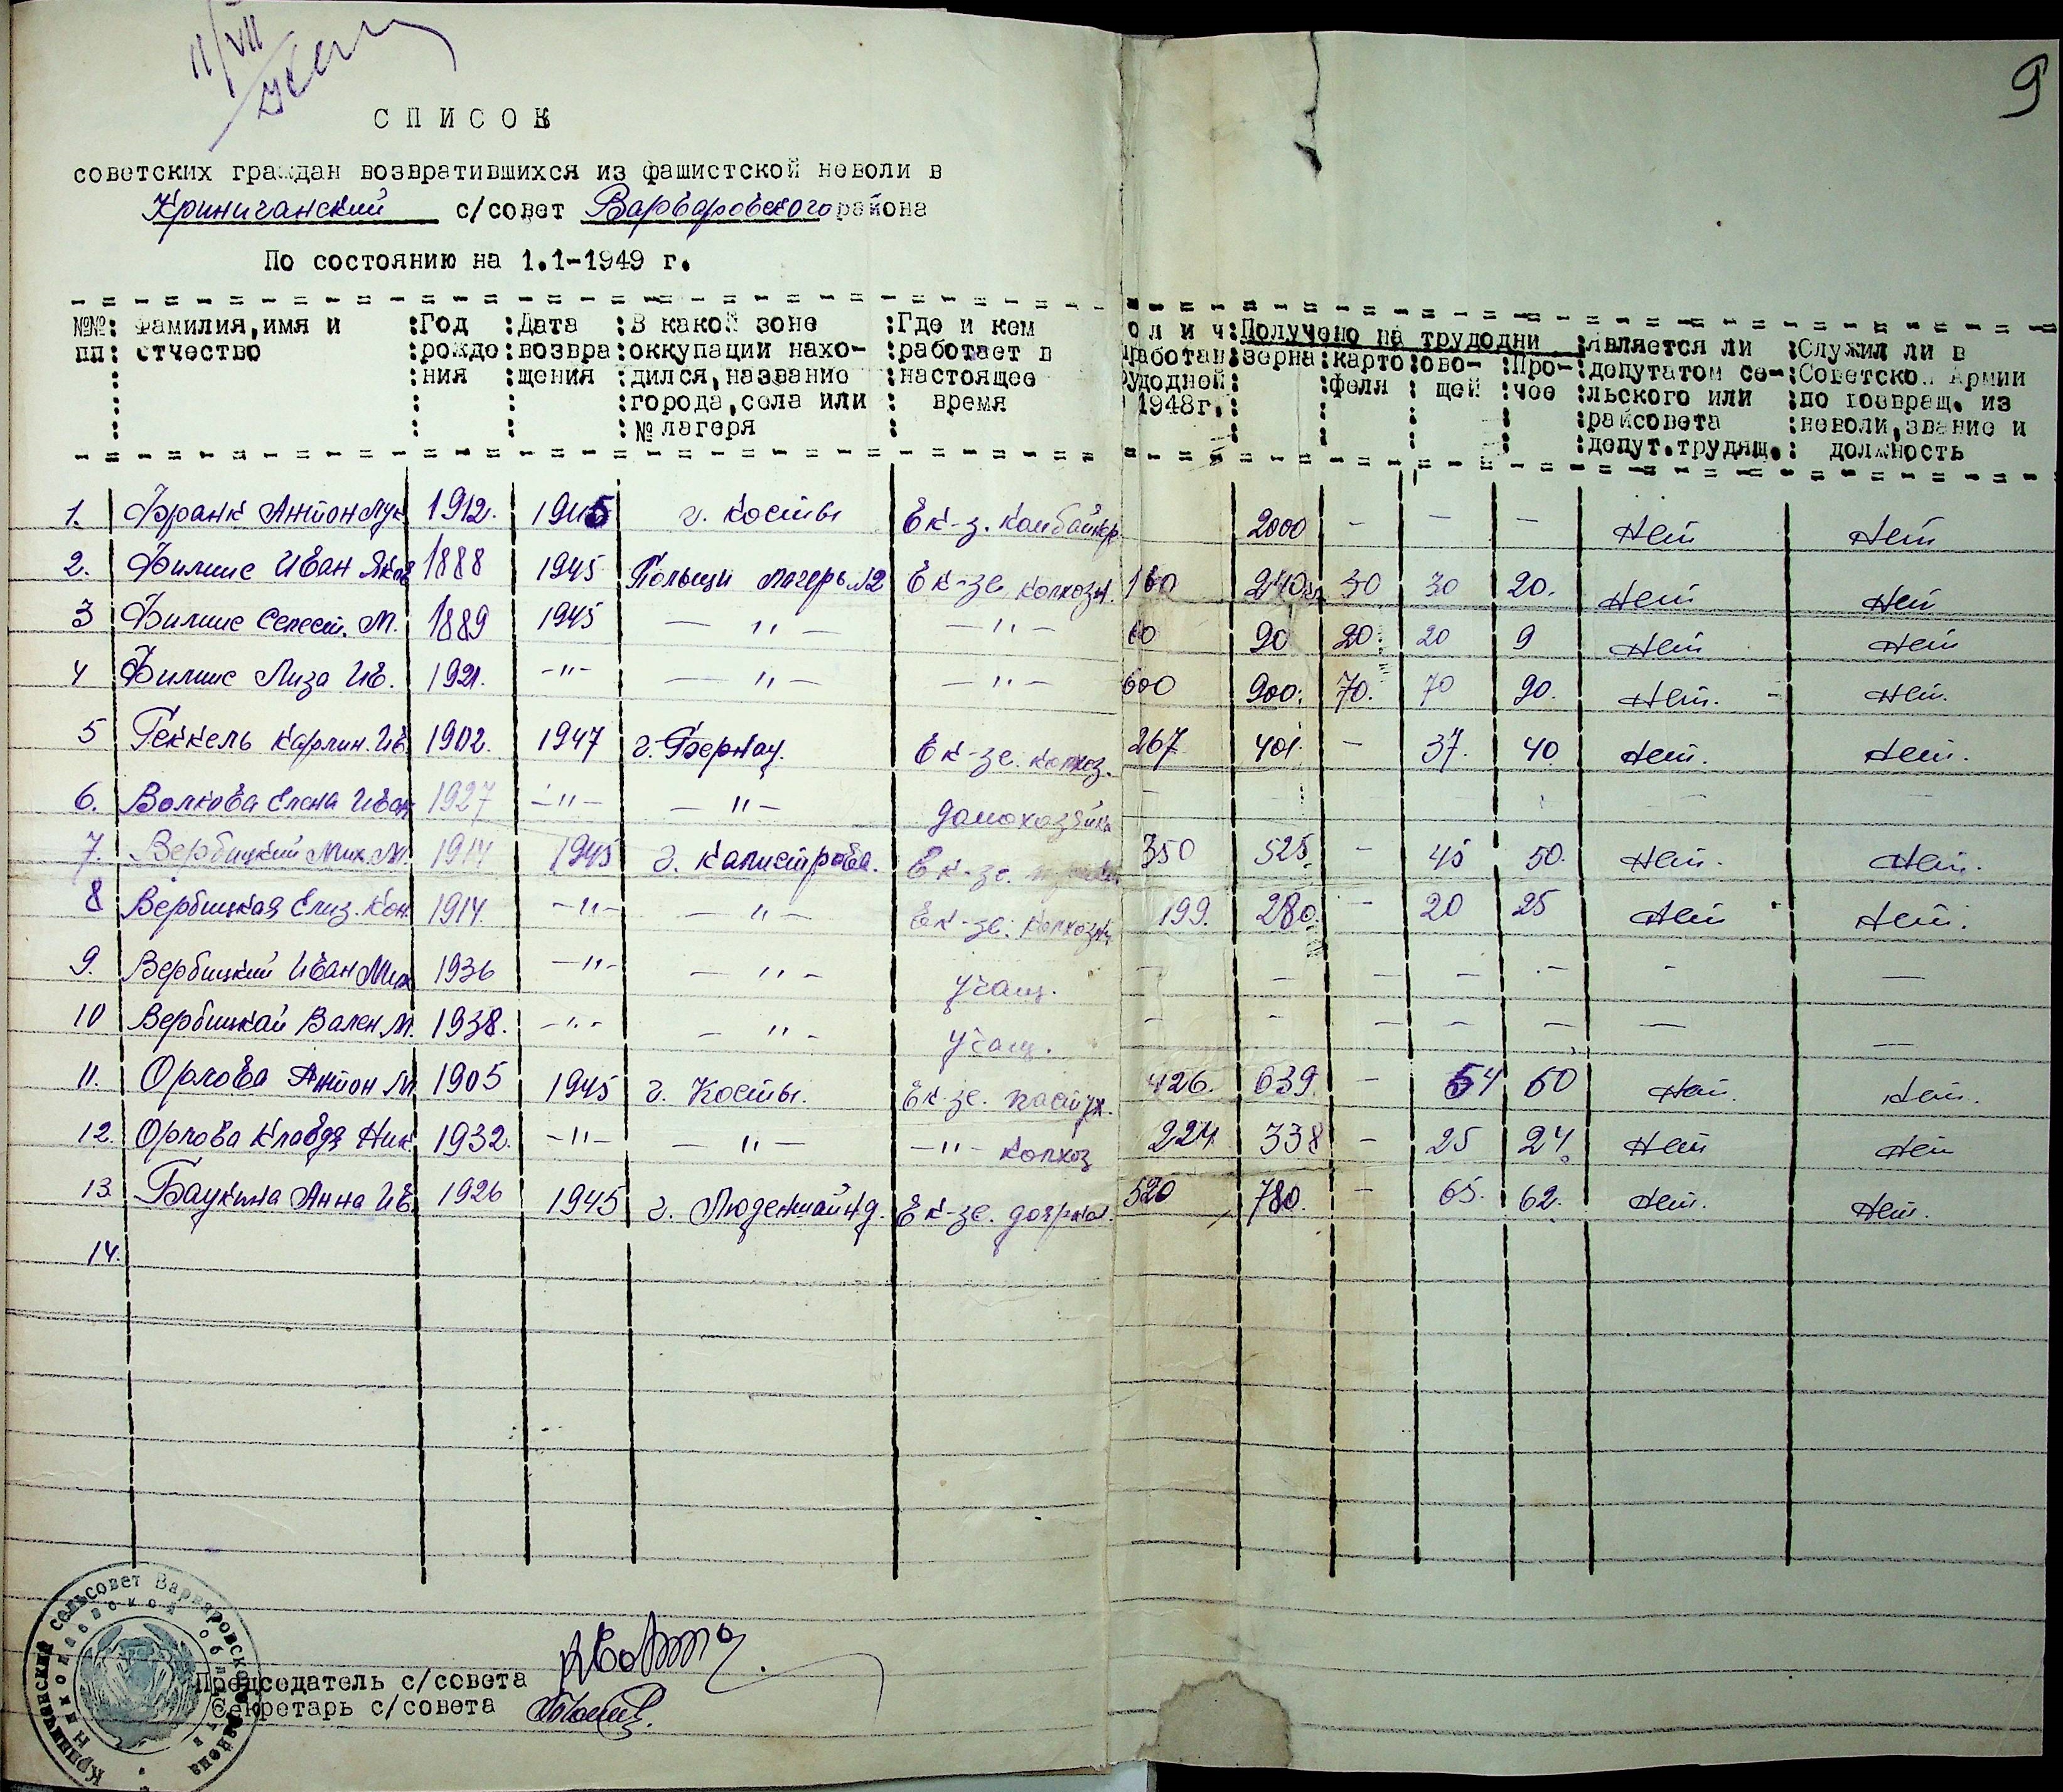 11/VII
9
СПИСОК
советских граждан возвратившихся из фашистской неволи в
Криничанский с/совет Варваровского района
По состоянию на 1.1-1949 г.
№№ пп : Фамилия, имя и отчество : Год рождения : Дата возвращения : В какой зоне оккупации находился, название города, села или № лагеря : Где и кем работает в настоящее время : олич работан рудодней 1948г. : Получено на трудодни : зерна : картофеля : овощей : Прочее : Является ли депутатом сельского или райсовета депут. трудящ. : Служил ли в Советской Армии по возвращ. из неволи, звание и должность
1. Франк Антон Лук 1912. 1945 г. Косты Ек-з. Комбайнер 2000 — — — Нет Нет
2. Филипс Иван Яков 1888 1945 Польщи лагерь №2 Ек-зе колхозн. 160 240 кг 30 30 20. Нет Нет
3 Филипс Селест. М. 1889 1945 — " — — " — 60 90 20. 20 9 Нет Нет
4 Филипс Лиза Ив. 1921. -"- — " — — " — 600 900. 70. 70 90. Нет. Нет.
5 Геккель Карлин. Ив 1902. 1947 г. Бернау. Ек-зе. колхоз. 267 401. — 37. 40. Нет. Нет.
6. Волкова Елена Иван 1927 -"- — " — домохозяйка — — —
7. Вербицкий Мих. М. 1914 1945 г. Калистрова. Ек-зе. 350 525. — 45 50. Нет. Нет.
8 Вербицкая Елиз. Кон. 1914. -"- — " — Ек-зе. колхозн. 199. 280. — 20 25 Нет Нет.
9. Вербицкий Иван Мих 1936 -"- — " — учащ. — — — — — - —
10 Вербицкай Вален М. 1938. -"- — " — учащ. — — — — — — —
11. Орлова Антон М 1905 1945 г. Косты. Ек-зе. пастух. 426. 639. — 64 60 Нет. Нет.
12. Орлова Клавдя Ник. 1932. -"- — " — -"- колхоз 224 338 — 25 24. Нет Нет
13. Баукина Анна Ив 1926 1945 г. Люденшайнд. Ек-зе. доярка. 520 780. — 65. 62. Нет. Нет.
14.
Криничанский сельсовет Варваровского района
Николаевской области
Председатель с/совета
Секретарь с/совета